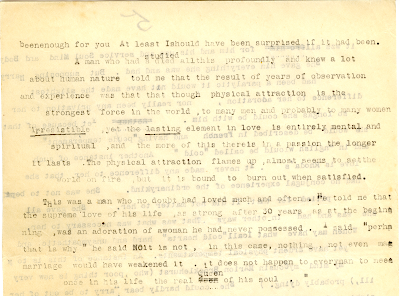 beenenough for you At least Ishould have been surprised if it had been.
studied
A man who had allthis profoundly and knew a lot
about human nature told me that the result of years of observation
and experience was that though physical attraction is the
strongest force in the world ,to many men and probably to many women
irresistible ,yet the lasting element in love is entirely mental and
spiritual ,and the more of this thereis in a passion the longer
it lasts .The physical attraction flames up ,almost seems to set the
world on fire ,but it is bound to burn out when satisfied.
This was a man who no doubt had loved much and often. He told me that
the supreme love of his life ,as strong after 30 years as at the begin
ning ,was an adoration of a woman he had never possessed . "
that is why " he said " it is not , in this case, nothing , not even
marriage would have weakened it . it does not happen to everyman to meet
Queen
once in his life the real of his soul .